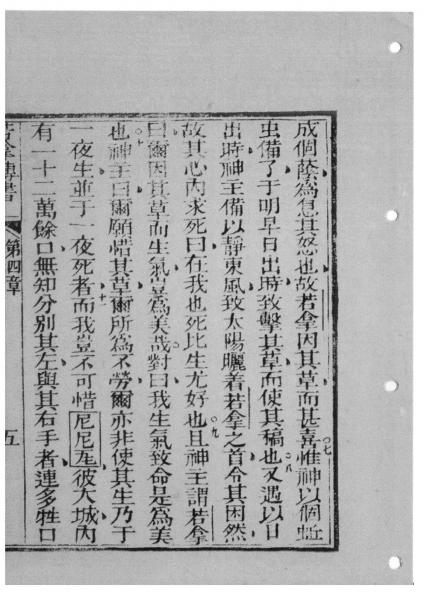 成個蔭為息其怒也故若拿因其草而甚喜七惟神以個蚯
虫備了于明早日出時致擊其草而使其稿也八又遇以日
出時神主備以靜東風致太陽曬着若拿之首令其困然
故其心內求死曰在我也死比生尤好也九且神主謂若拿
曰爾因其草而生氣豈為美哉對曰我生氣致命是為美
也十神主曰爾願惜其草爾所為不勞爾亦非使其生乃于
一夜生並于一夜死者十一而我豈不可惜尼尼瓦彼大城內
有一十二萬餘口無知分別其左與其右手者連多牲口
若拿傳書 第四章 五